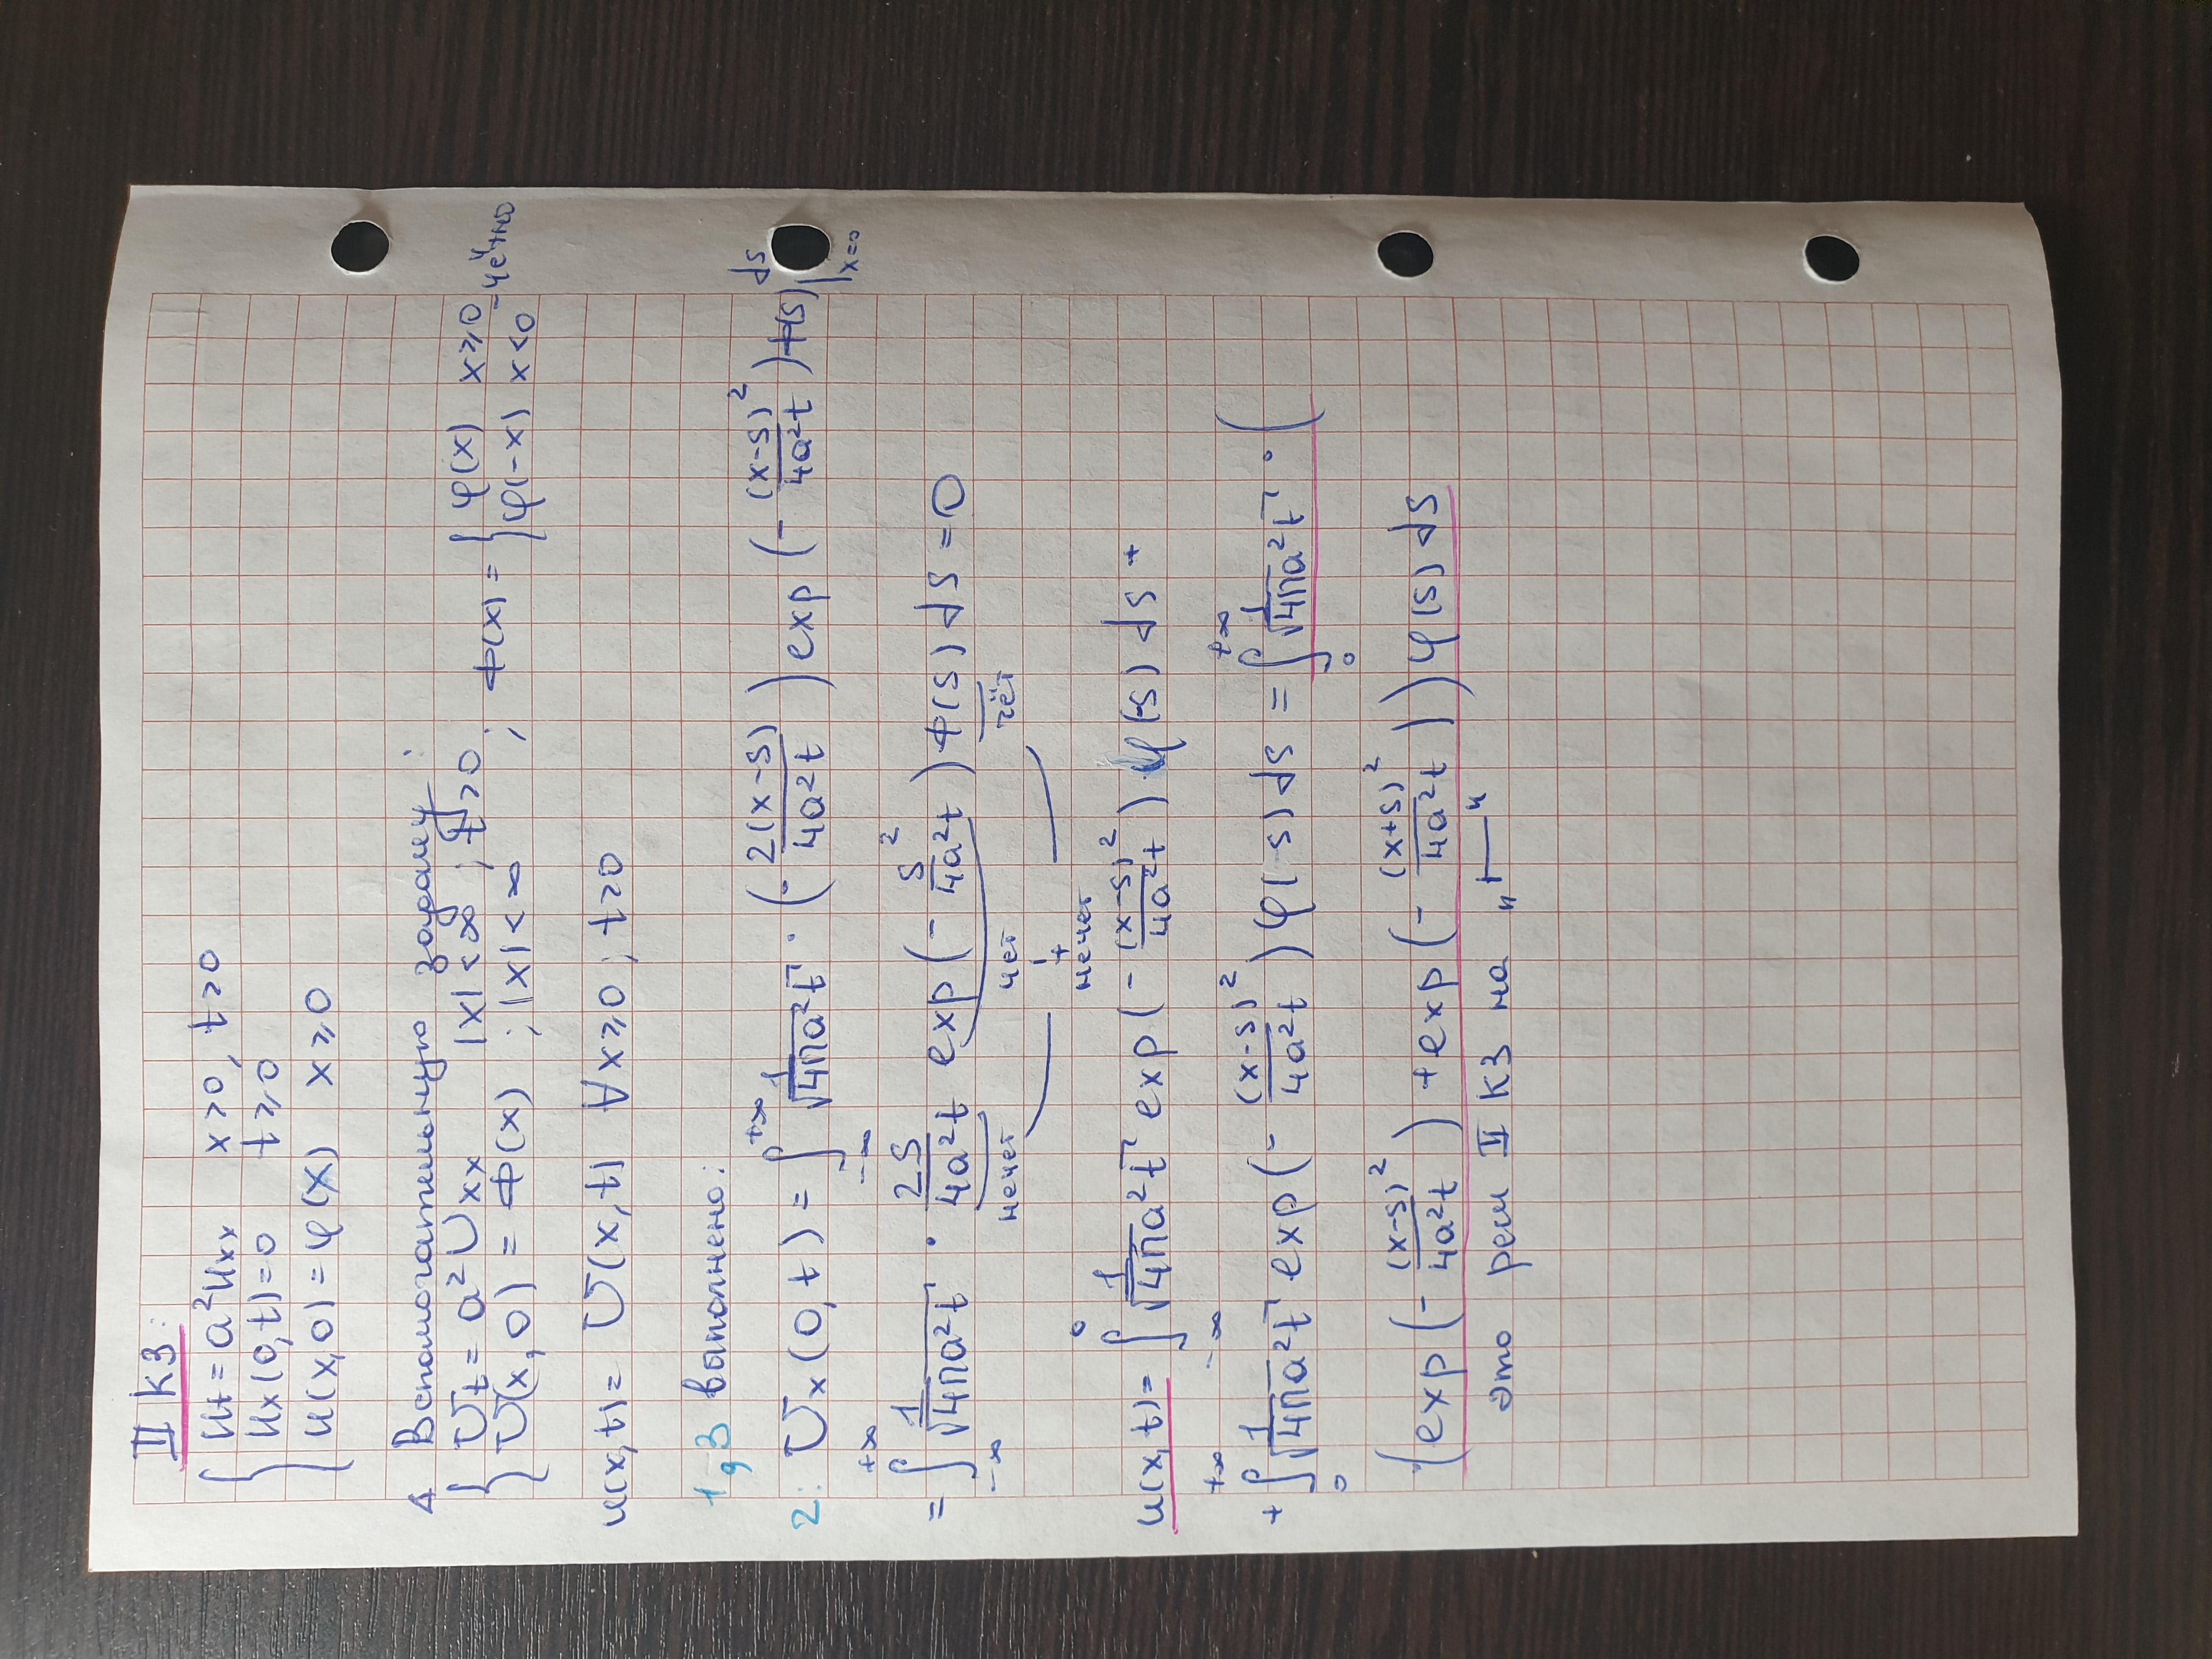 II КЗ:
{ u_t = a²u_xx x>0, t>0
u_x(0,t)=0 t⩾0
u(x,0)=φ(x) x⩾0
Δ Вспомогательную задачу:
{ U_t = a²U_xx |x|<∞; t>0
U(x,0) = Ф(x) ; |x|<∞ ; Ф(x) = { φ(x) x⩾0 φ(-x) x<0 - чётно
u(x,t) = U(x,t) ∀x⩾0; t>0
1,3 выполнено:
2: U_x(0,t) = ∫_{-∞}^{+∞} 1/√(4πa²t) · (- 2(x-s)/(4a²t)) exp(- (x-s)²/(4a²t)) Ф(s) ds |_{x=0}
= ∫_{-∞}^{+∞} 1/√(4πa²t) · 2s/(4a²t) exp(- s²/(4a²t)) Ф(s) ds = 0
нечет чет чёт
нечет
u(x,t) = ∫_{-∞}^{0} 1/√(4πa²t) exp(- (x-s)²/(4a²t)) φ(-s) ds +
+ ∫_{0}^{+∞} 1/√(4πa²t) exp(- (x-s)²/(4a²t)) φ(s) ds = ∫_{0}^{+∞} 1/√(4πa²t) · (
· (exp(- (x-s)²/(4a²t)) + exp(- (x+s)²/(4a²t))) φ(s) ds
это реш II КЗ на "⊢"